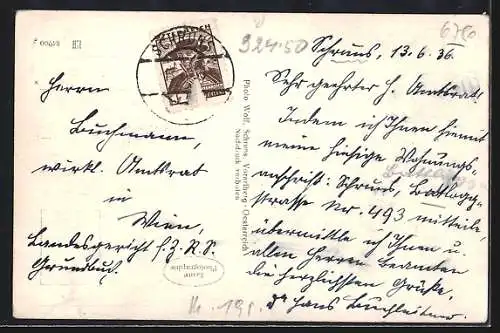 Schruns, 13.6.36.
Sehr geehrter H. Amtsrat!
Indem ich Ihnen hiemit
meine hiesige Wohnungs-
anschrift: Schruns, Batlogg-
strasse Nr. 493 mitteile,
übermittle ich Ihnen u.
allen Herren Beamten
die herzlichsten Grüße,
Dr Hans
Herrn
Buchmann,
wirkl. Amtsrat
in
Wien,
Landesgericht f. Z. R. S.
Grundbuch.
SCHRUNS
Photo Wolf, Schruns, Vorarlberg - Oesterreich
Nachdruck verboten
Echte
Photographie
924·50